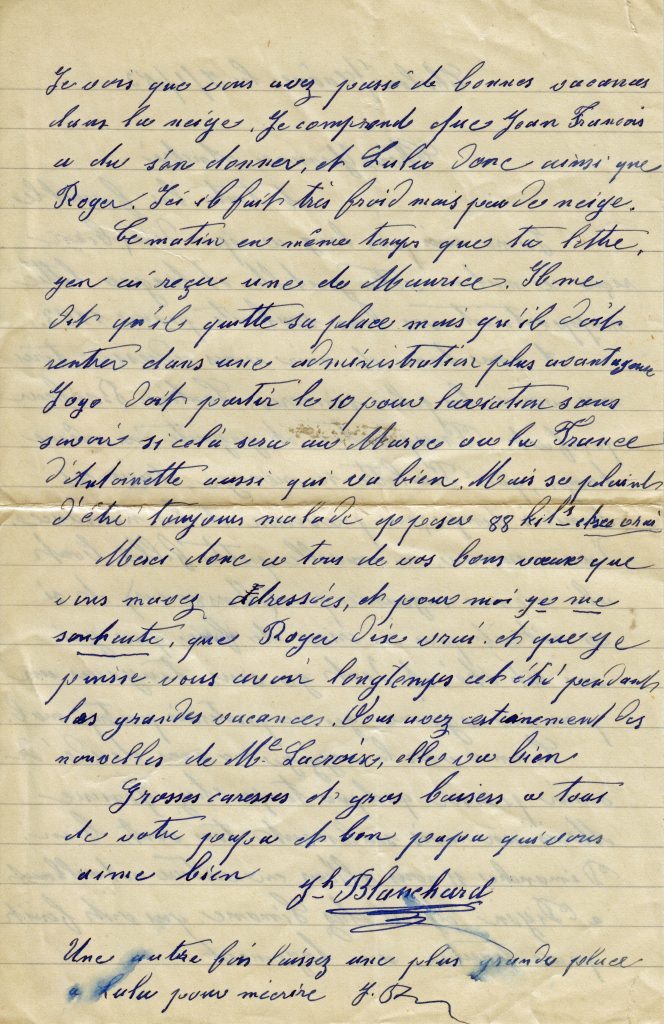 Je vois que vous avez passé de bonnes vacances
dans la neige. Je comprend que Jean François
a du s'en donner, et Lulu donc ainsi que
Roger. Ici il fait très froid mais peu de neige.
Ce matin en même temps que ta lettre,
y'en ai reçu une de Maurice. Il me
dit qu'il quitte sa place mais qu'il doit
rentrer dans une administration plus avantageuse
Jojo doit partir le 10 pour l'aviation sans
savoir si celà sera au Maroc ou la France
d'Antoinette aussi qui va bien. Mais se plaint
d'être toujours malade et peser 88 kil^s
Merci donc a tous de vos bons vœux que
vous mavez adressées, et pour moi ye me
souhaite, que Roger dise vrai. et que ye
puisse vous avoir longtemps cet été pendant
les grandes vacances. Vous avez certainement des
nouvelles de M^e Lacroix, elle va bien
Grosses caresses et gros baisers a tous
de votre papa et bon papa qui vous
aime bien
J^h Blanchard
Une autre fois laissez une plus grande place
a Lulu pour mécrire J. B